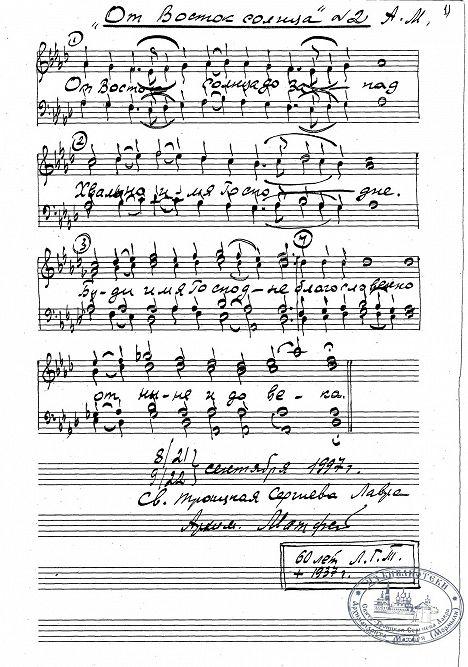 „От Восток солнца" №2 А. М. 1)
1
От Восток солнца до запад
2
Хвально имя Господне.
3 4
Буди имя Господне благословенно
от ныне и до века.
8/21
9/22 } сентября 1997 г.
Св. Троицкая Сергиева Лавра
Архим. Матфей
60 лет Л.Г.М.
+ 1937 г.